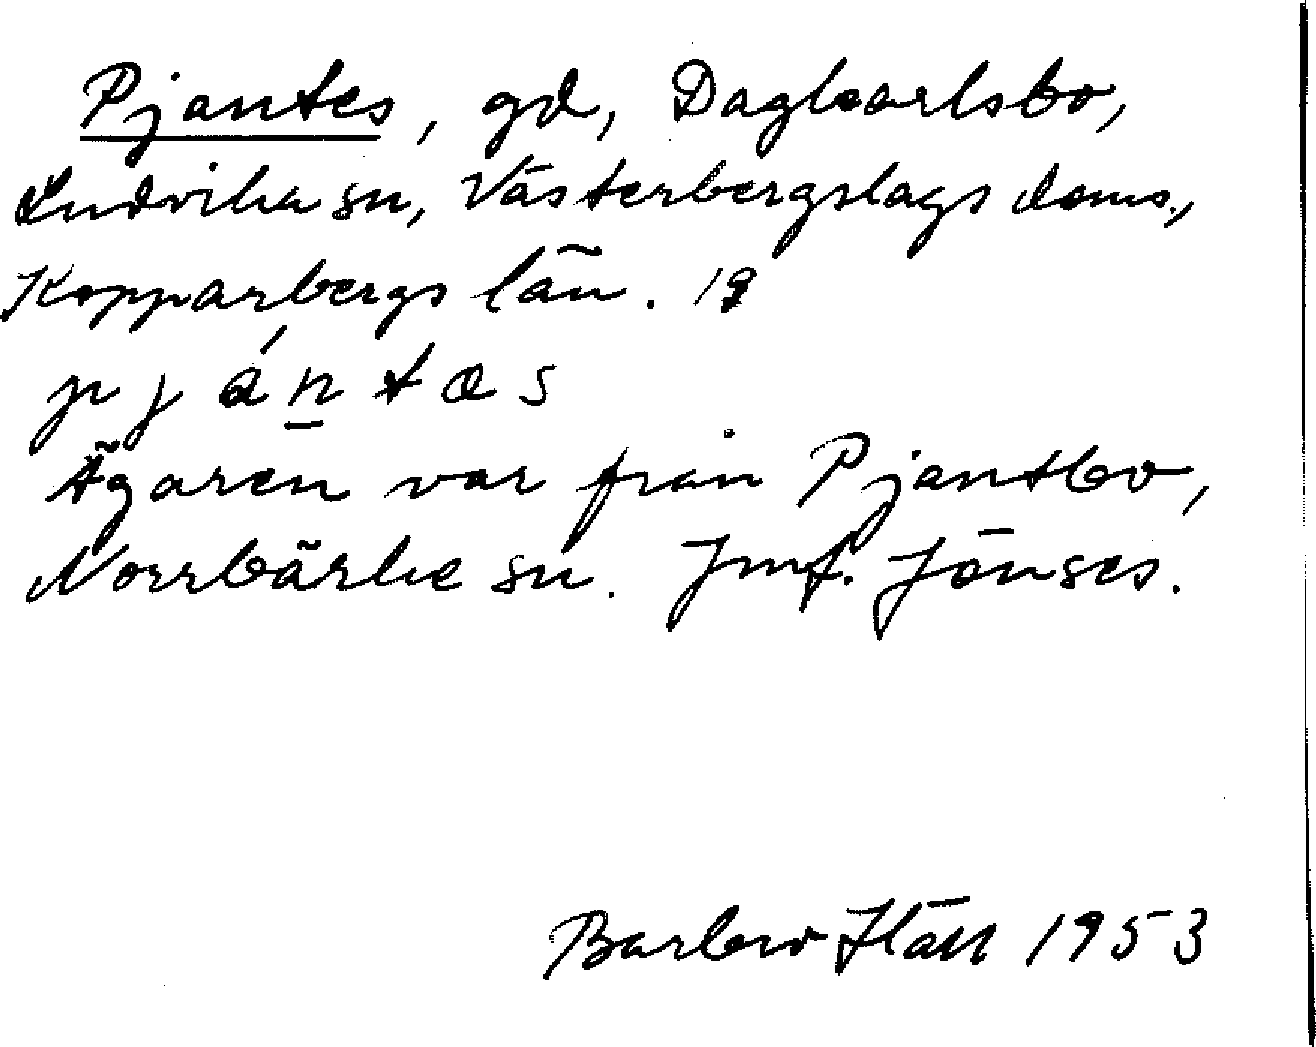 Pjantes, gd, Dagkarlsbo,
Ludvika sn, Västerbergslags doms.,
Kopparbergs län. 19
pjántəs
Ägaren var från Pjantbo,
Norrbärke sn. Jmf. Jönses.
Barbro Häll 1953